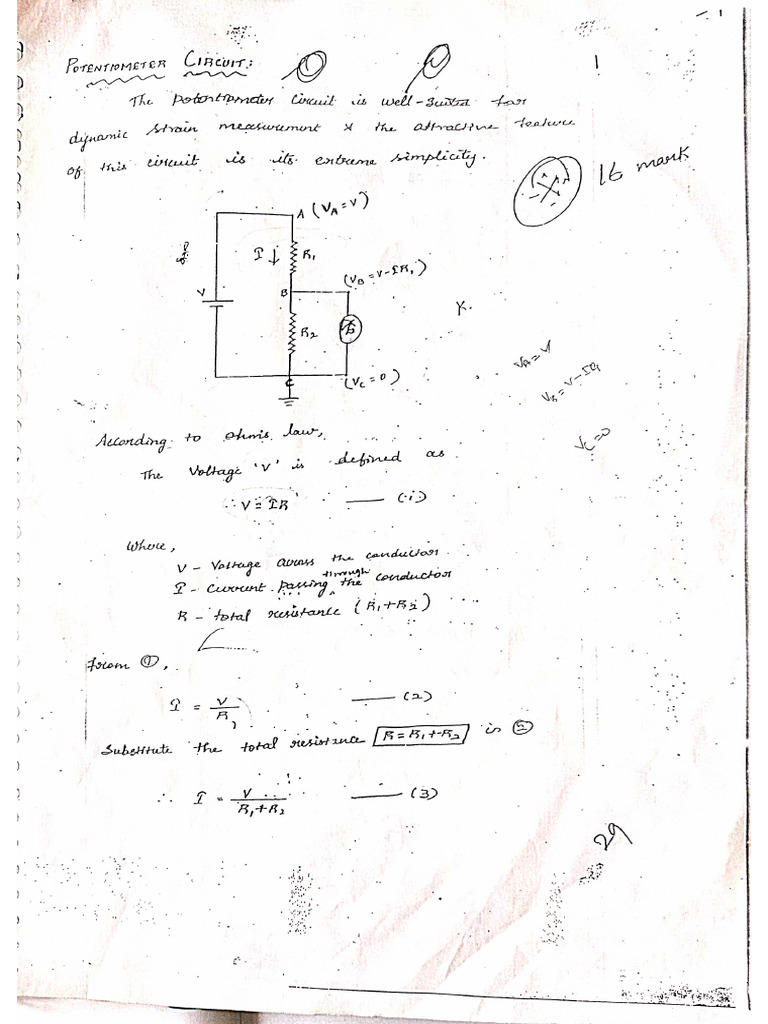 POTENTIOMETER CIRCUIT:
1
The Potentiometer circuit is well-suited for
dynamic strain measurement & the attractive feature
of this circuit is its extreme simplicity.
16 mark
A (VA = V)
I ↓ R1
(VB = V - IR1)
V
B
R2
K.
C
(VC = 0)
VA = V
VB = V - IR1
VC = 0
According to ohm's law,
The Voltage 'V' is defined as
∴ V = IR —— (i)
Where,
V - Voltage across the conductor.
I - Current passing through the conductor
R - total resistance (R1+R2)
From ①,
I = V/R, —— (2)
Substitute the total resistance R = R1+R2 in ②
∴ I = V/(R1+R2) —— (3)
29